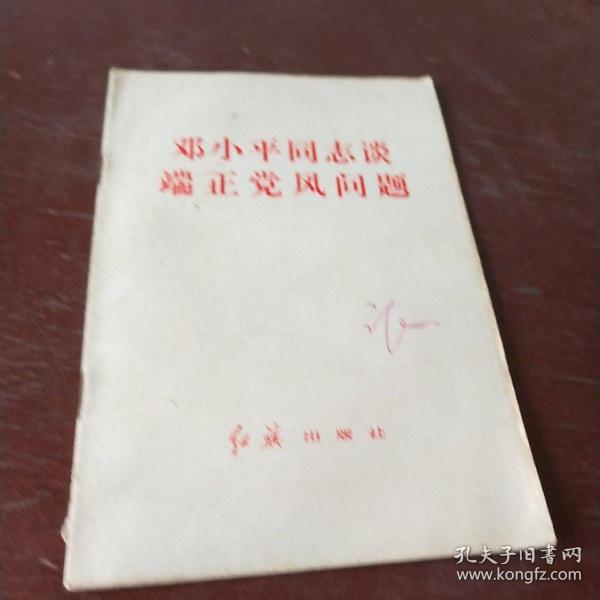 邓小平同志谈
端正党风问题
红旗出版社
孔夫子旧书网
www.kongfz.com